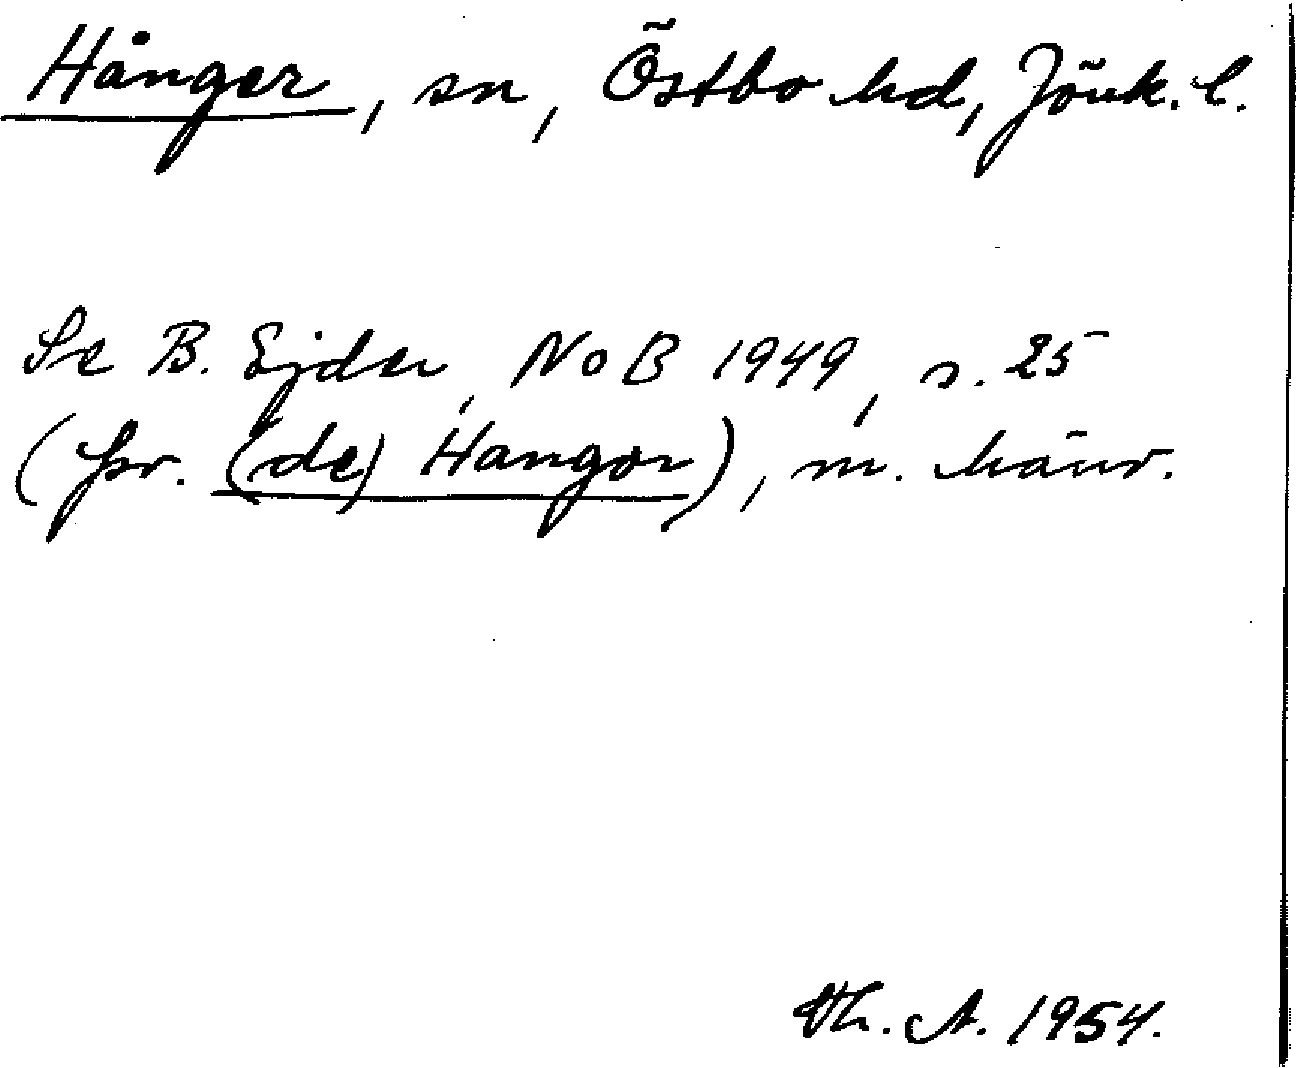 Hånger, sn, Östbo hd, Jönk. l.
Se B. Ejder, NoB 1949, s. 25
(fsv. (de) Hangor), m. hänv.
Th. A. 1954.